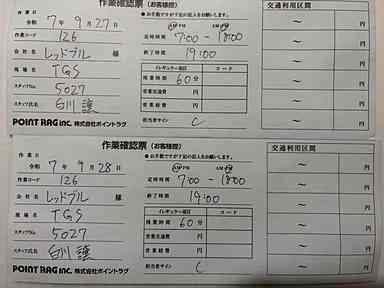 作業確認票（お客様控）
作業日 令和 7年 9月 27日
●お手数ですが下記の記入をお願いします。
交通利用区間
作業コード 126
AM PM AM PM
定時時間 7:00 ～ 18:00
会社名 レッドブル 様
終了時間 19:00
現場名 TGS
イレギュラー項目 コード
スタッフNo. 5027
残業時間 60分
スタッフ氏名 白川 譲
営業交通費 円
営業経費 円
POINT RAG INC. 株式会社ポイントラグ
担当者サイン C
～ 円
～ 円
～ 円
～ 円
円
作業確認票（お客様控）
作業日 令和 7年 9月 28日
●お手数ですが下記の記入をお願いします。
交通利用区間
作業コード 126
AM PM AM PM
定時時間 7:00 ～ 18:00
会社名 レッドブル 様
終了時間 19:00
現場名 TGS
イレギュラー項目 コード
スタッフNo. 5027
残業時間 60分
スタッフ氏名 白川 譲
営業交通費 円
営業経費 円
POINT RAG INC. 株式会社ポイントラグ
担当者サイン C
～ 円
～ 円
～ 円
～ 円
円